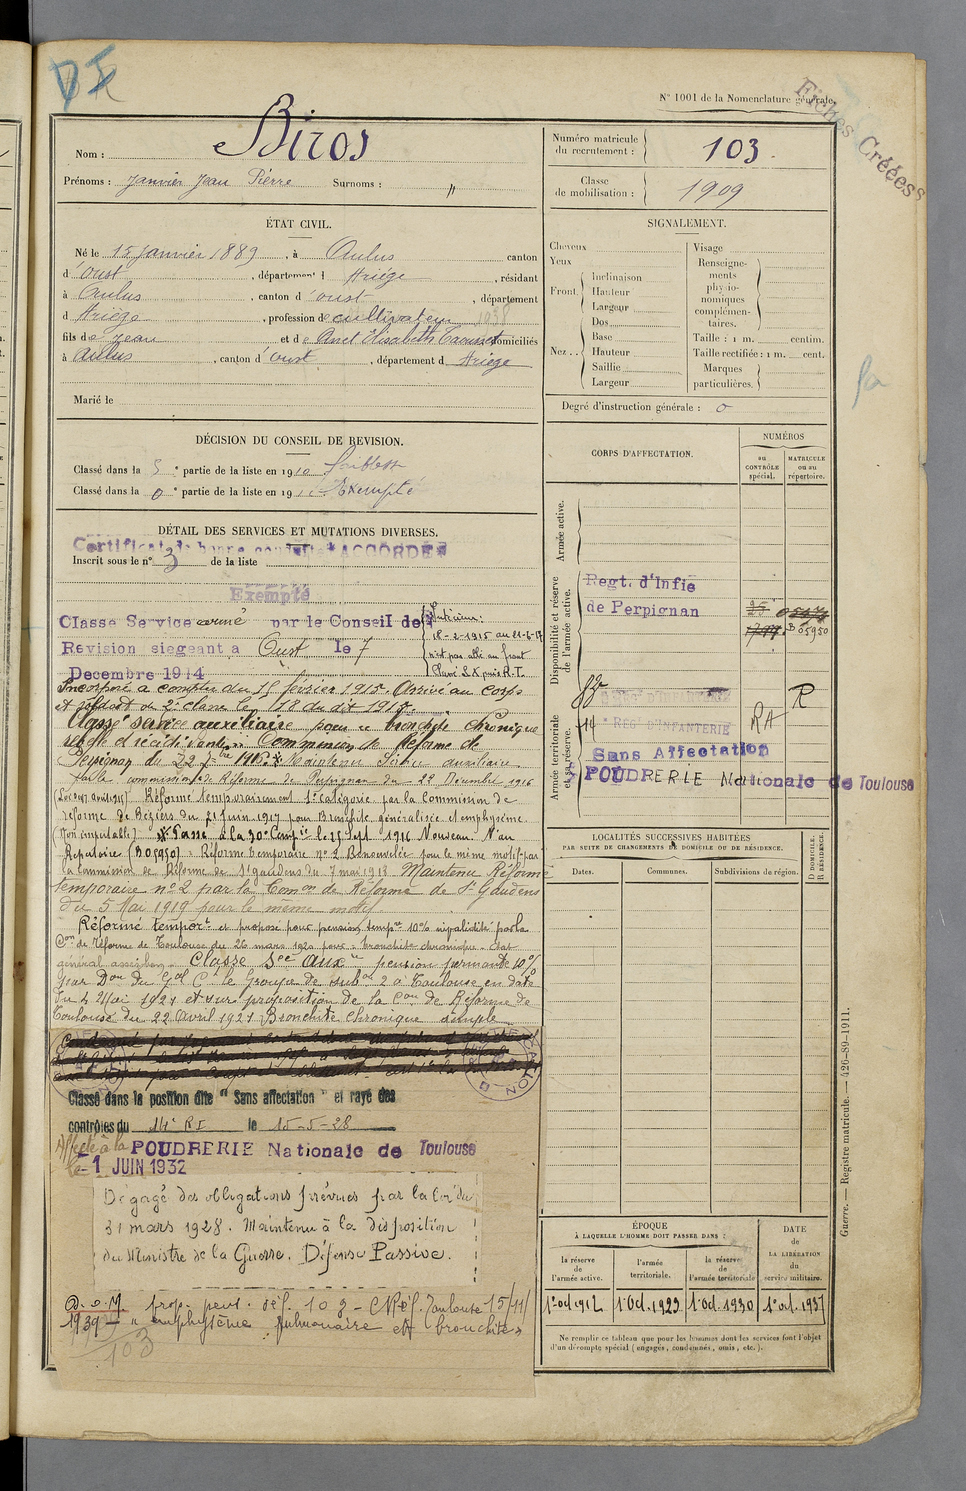 DI
N° 1001 de la Nomenclature générale.
Fiches Créées
Nom : Biros
Prénoms : Janvier Jean Pierre Surnoms : "
Numéro matricule du recrutement : 103.
Classe de mobilisation : 1909
ÉTAT CIVIL.
Né le 15 janvier 1889, à Aulus canton
d'Oust, département d Ariège, résidant
à Aulus, canton d'Oust, département
d Ariège, profession de cultivateur 1938
fils de Jean et de Anet Elisabeth domiciliés
à Aulus, canton d'Oust, département d Ariège
Marié le
SIGNALEMENT.
Cheveux
Yeux
Front. Inclinaison
Hauteur
Largeur
Nez .. Dos
Base
Hauteur
Saillie
Largeur
Visage
Renseignements physionomiques complémentaires.
Taille : 1 m. centim.
Taille rectifiée : 1 m. cent.
Marques particulières.
Degré d'instruction générale : 0
DÉCISION DU CONSEIL DE REVISION.
Classé dans la 5e partie de la liste en 1910 faiblesse
Classé dans la 0e partie de la liste en 1911 Exempté
DÉTAIL DES SERVICES ET MUTATIONS DIVERSES.
Certificat de bonne conduite ACCORDÉ
Inscrit sous le n° 3 de la liste
Exempté
Classé Service armé par le Conseil de
Revision siegeant a Oust le 7
Decembre 1914
Intérieur :
18-2-1915 au 21-6-17
n'est pas allé au front
Incorporé à compter du 18 février 1915. Arrivé au corps
et soldat de 2e classe le 18 du dit 1915.
Classé service auxiliaire pour bronchite chronique
Commission de Réforme de
Perpignan du 22 1915. Maintenu Service auxiliaire
par la commission de Réforme de Perpignan du 22 Décembre 1916
Réformé temporairement 1e catégorie par la Commission de
réforme de Béziers du 21 juin 1917 pour Bronchite généralisée et emphysème.
(Non imputable) Passé à la 30e Comp ie le 15 Sept 1916 Nouveau N° au
Répertoire (B05950). Réforme temporaire n° 2 Renouvelée pour le même motif par
la Commission de Réforme de St gaudens du 7 mai 1918 Maintenu Réforme
temporaire n° 2 par la Comon de Réforme de St Gaudens
du 5 Mai 1919 pour le même motif
Réformé temport et proposé pour pension tempre 10% invalidité par la
Con de Réforme de Toulouse du 26 mars 1920 pour bronchite chronique. Etat
général assez bon. Classé Sce Auxre pension permante 10%
par Don du Gal Ct le Groupe de subon 2 à Toulouse en date
du 4 Mai 1921 et sur proposition de la Con de Réforme de
Toulouse du 22 Avril 1921 Bronchite Chronique simple
Classé dans la position dite "Sans affectation" et rayé des
contrôles du 14e RI le 15-5-28
Affecté à la POUDRERIE Nationale de Toulouse
le -1 JUIN 1932
Dégagé des obligations prévues par la loi du
31 mars 1928. Maintenu à la disposition
du Ministre de la Guerre. Défense Passive.
D.O.M. prop. pens. déf. 10% - CRéf. Toulouse 15/11/
1939 - "emphysème pulmonaire et bronchite"
103
CORPS D'AFFECTATION.
NUMÉROS
au CONTRÔLE spécial.
MATRICULE ou au répertoire.
Armée active.
Disponibilité et réserve de l'armée active.
Regt. d'Infie
de Perpignan
B 05950
Armée territoriale et sa réserve.
R
RA
REG' D'INFANTERIE
Sans Affectation
POUDRERIE Nationale de Toulouse
LOCALITÉS SUCCESSIVES HABITÉES
PAR SUITE DE CHANGEMENTS DE DOMICILE OU DE RÉSIDENCE.
D DOMICILE.
R RÉSIDENCE.
Dates.
Communes.
Subdivisions de région.
ÉPOQUE
À LAQUELLE L'HOMME DOIT PASSER DANS :
la réserve de l'armée active.
l'armée territoriale.
la réserve de l'armée territoriale
DATE de LA LIBÉRATION du service militaire.
1er Oct 1912
1er Oct. 1923
1er Oct. 1930
1er oct. 1937
Ne remplir ce tableau que pour les hommes dont les services font l'objet
d'un décompte spécial (engagés, condamnés, omis, etc.).
Guerre. — Registre matricule. — 426-89-1911.